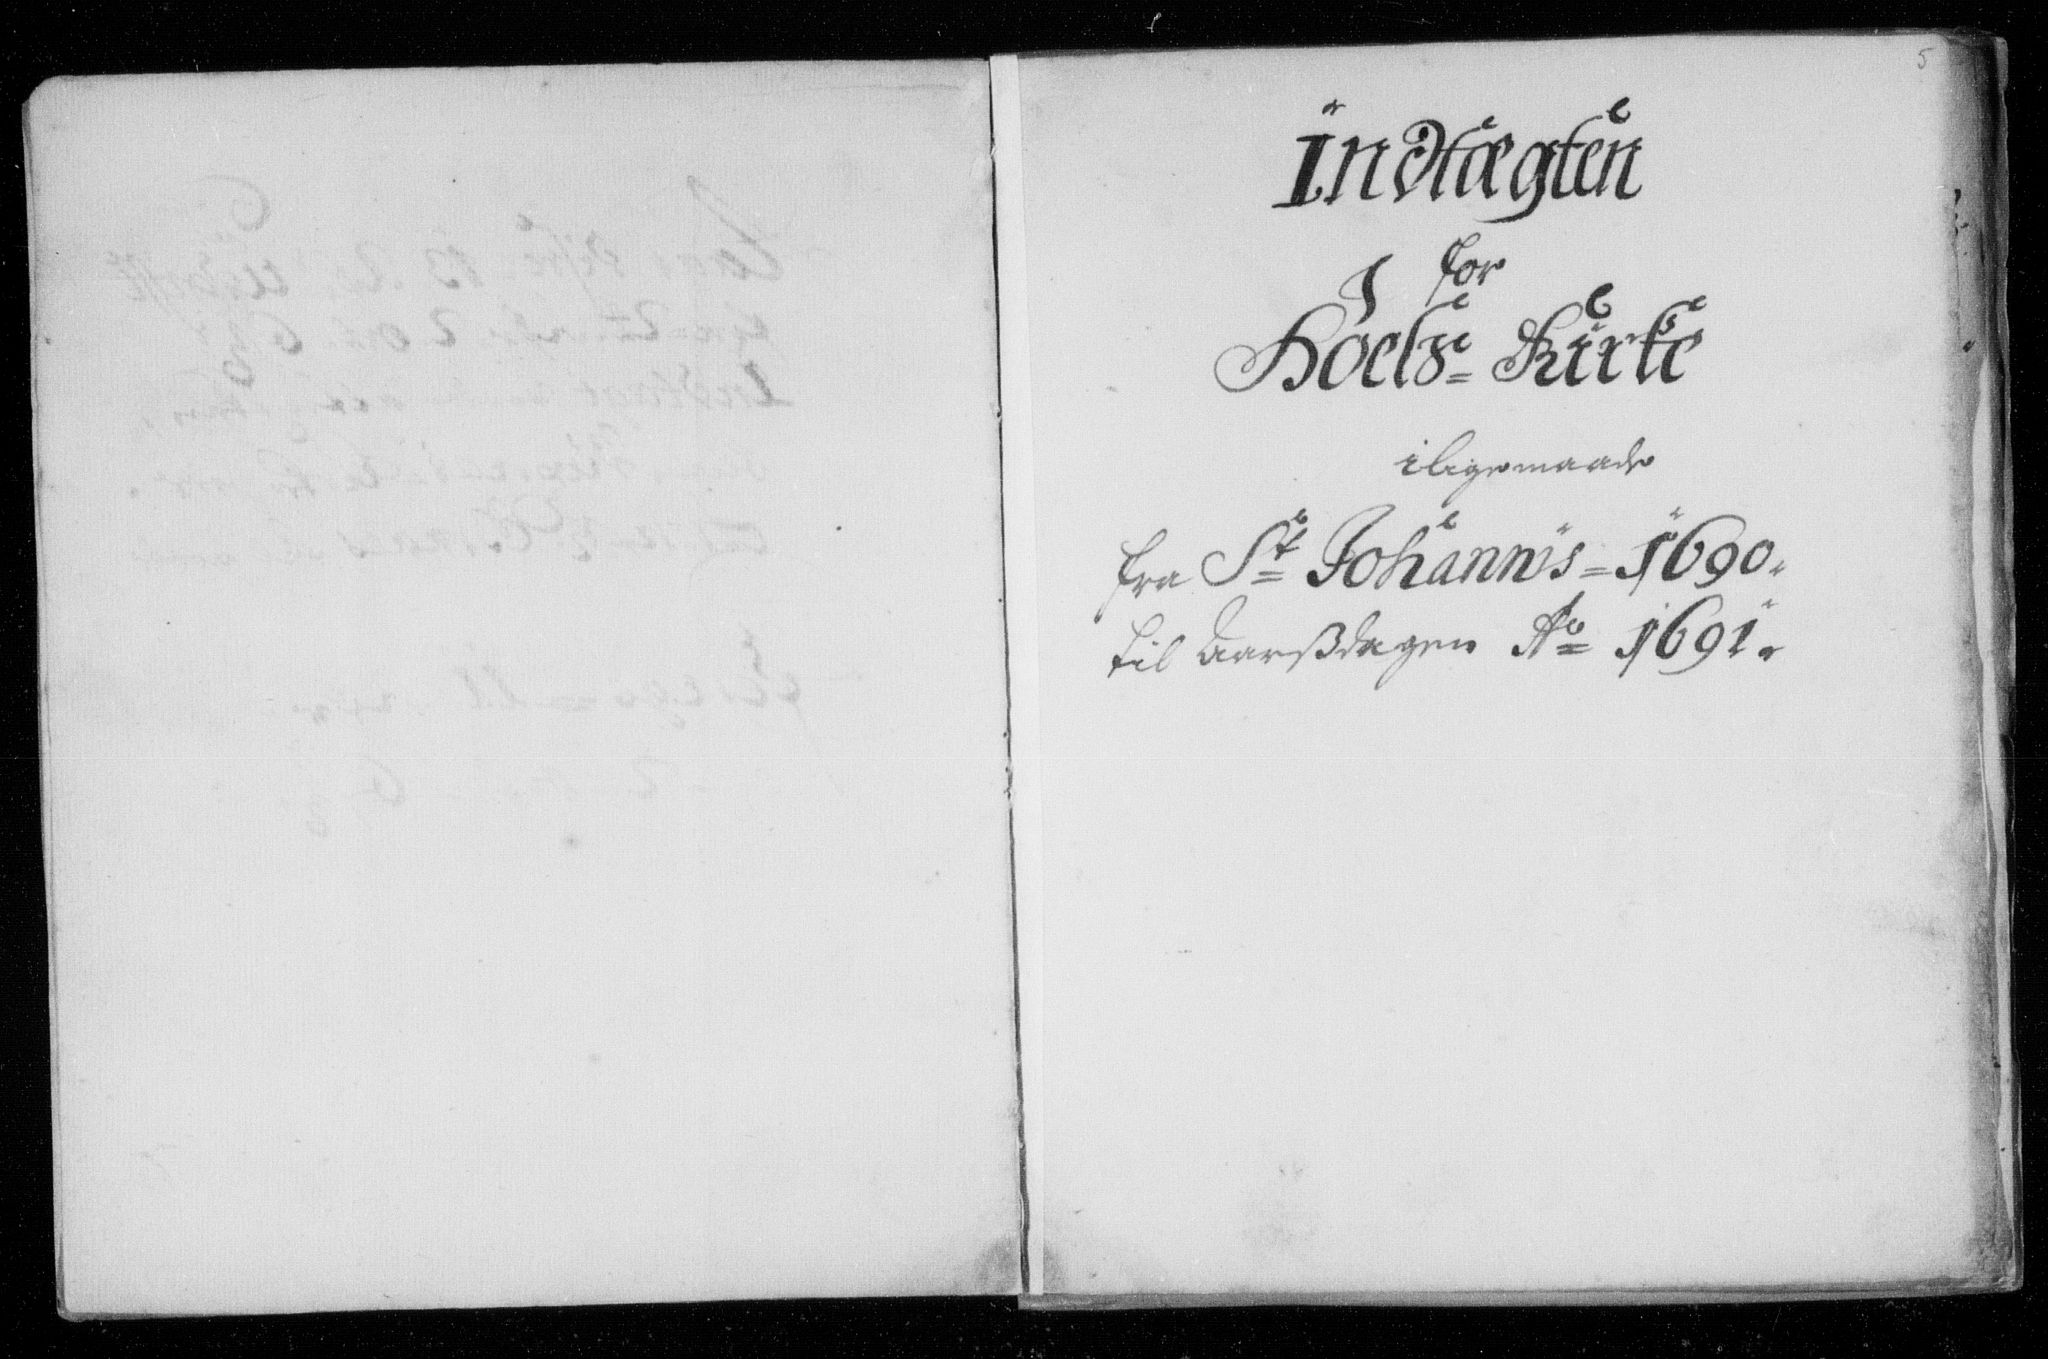 5
Indtægten
for
Hoels= Kircke
iligemaade
fra St Johannis= 1690.
til Aarsßdagen Ao 1691.